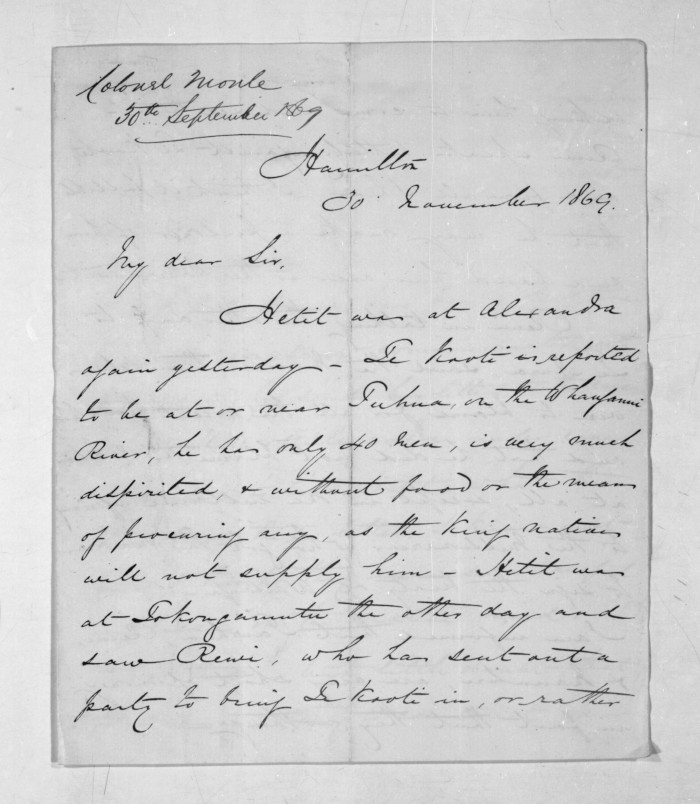 Colonel Moule
30th September 1869
Hamilton
30 November 1869.
My dear Sir,
Hetit was at Alexandra
again yesterday - Te Kooti is reported
to be at or near Tuhua, on the Whanganui
River, he has only 40 men, is very much
dispirited, & without food or the means
of procuring any, as the King natives
will not supply him - Hetit was
at Tokangamutu the other day and
saw Rewi, who has sent out a
party to bring Te Kooti in, or rather